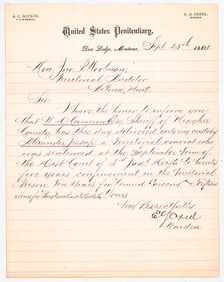 A. C. BOTKIN,
U. S. MARSHAL.
E. D. ONEAL,
WARDEN.
United States Penitentiary,
Deer Lodge, Montana, Sept. 25th 188
Hon. Jno. P. Woolman,
Territorial Auditor
Helena, Mont.
Sir
I have the honor to inform you
that W. H. Cameron Esq. Sheriff of Meagher
County, has this day delivered into my custody
Alexander Jessup a Territorial convict who
was sentenced at the September Term of
the Dist. Court of 3rd Jud.
five years confinement in the Territorial
Prison. Ten Years for Grand Larceny and Fifteen
years for
Yours
Very Respectfully
Warden